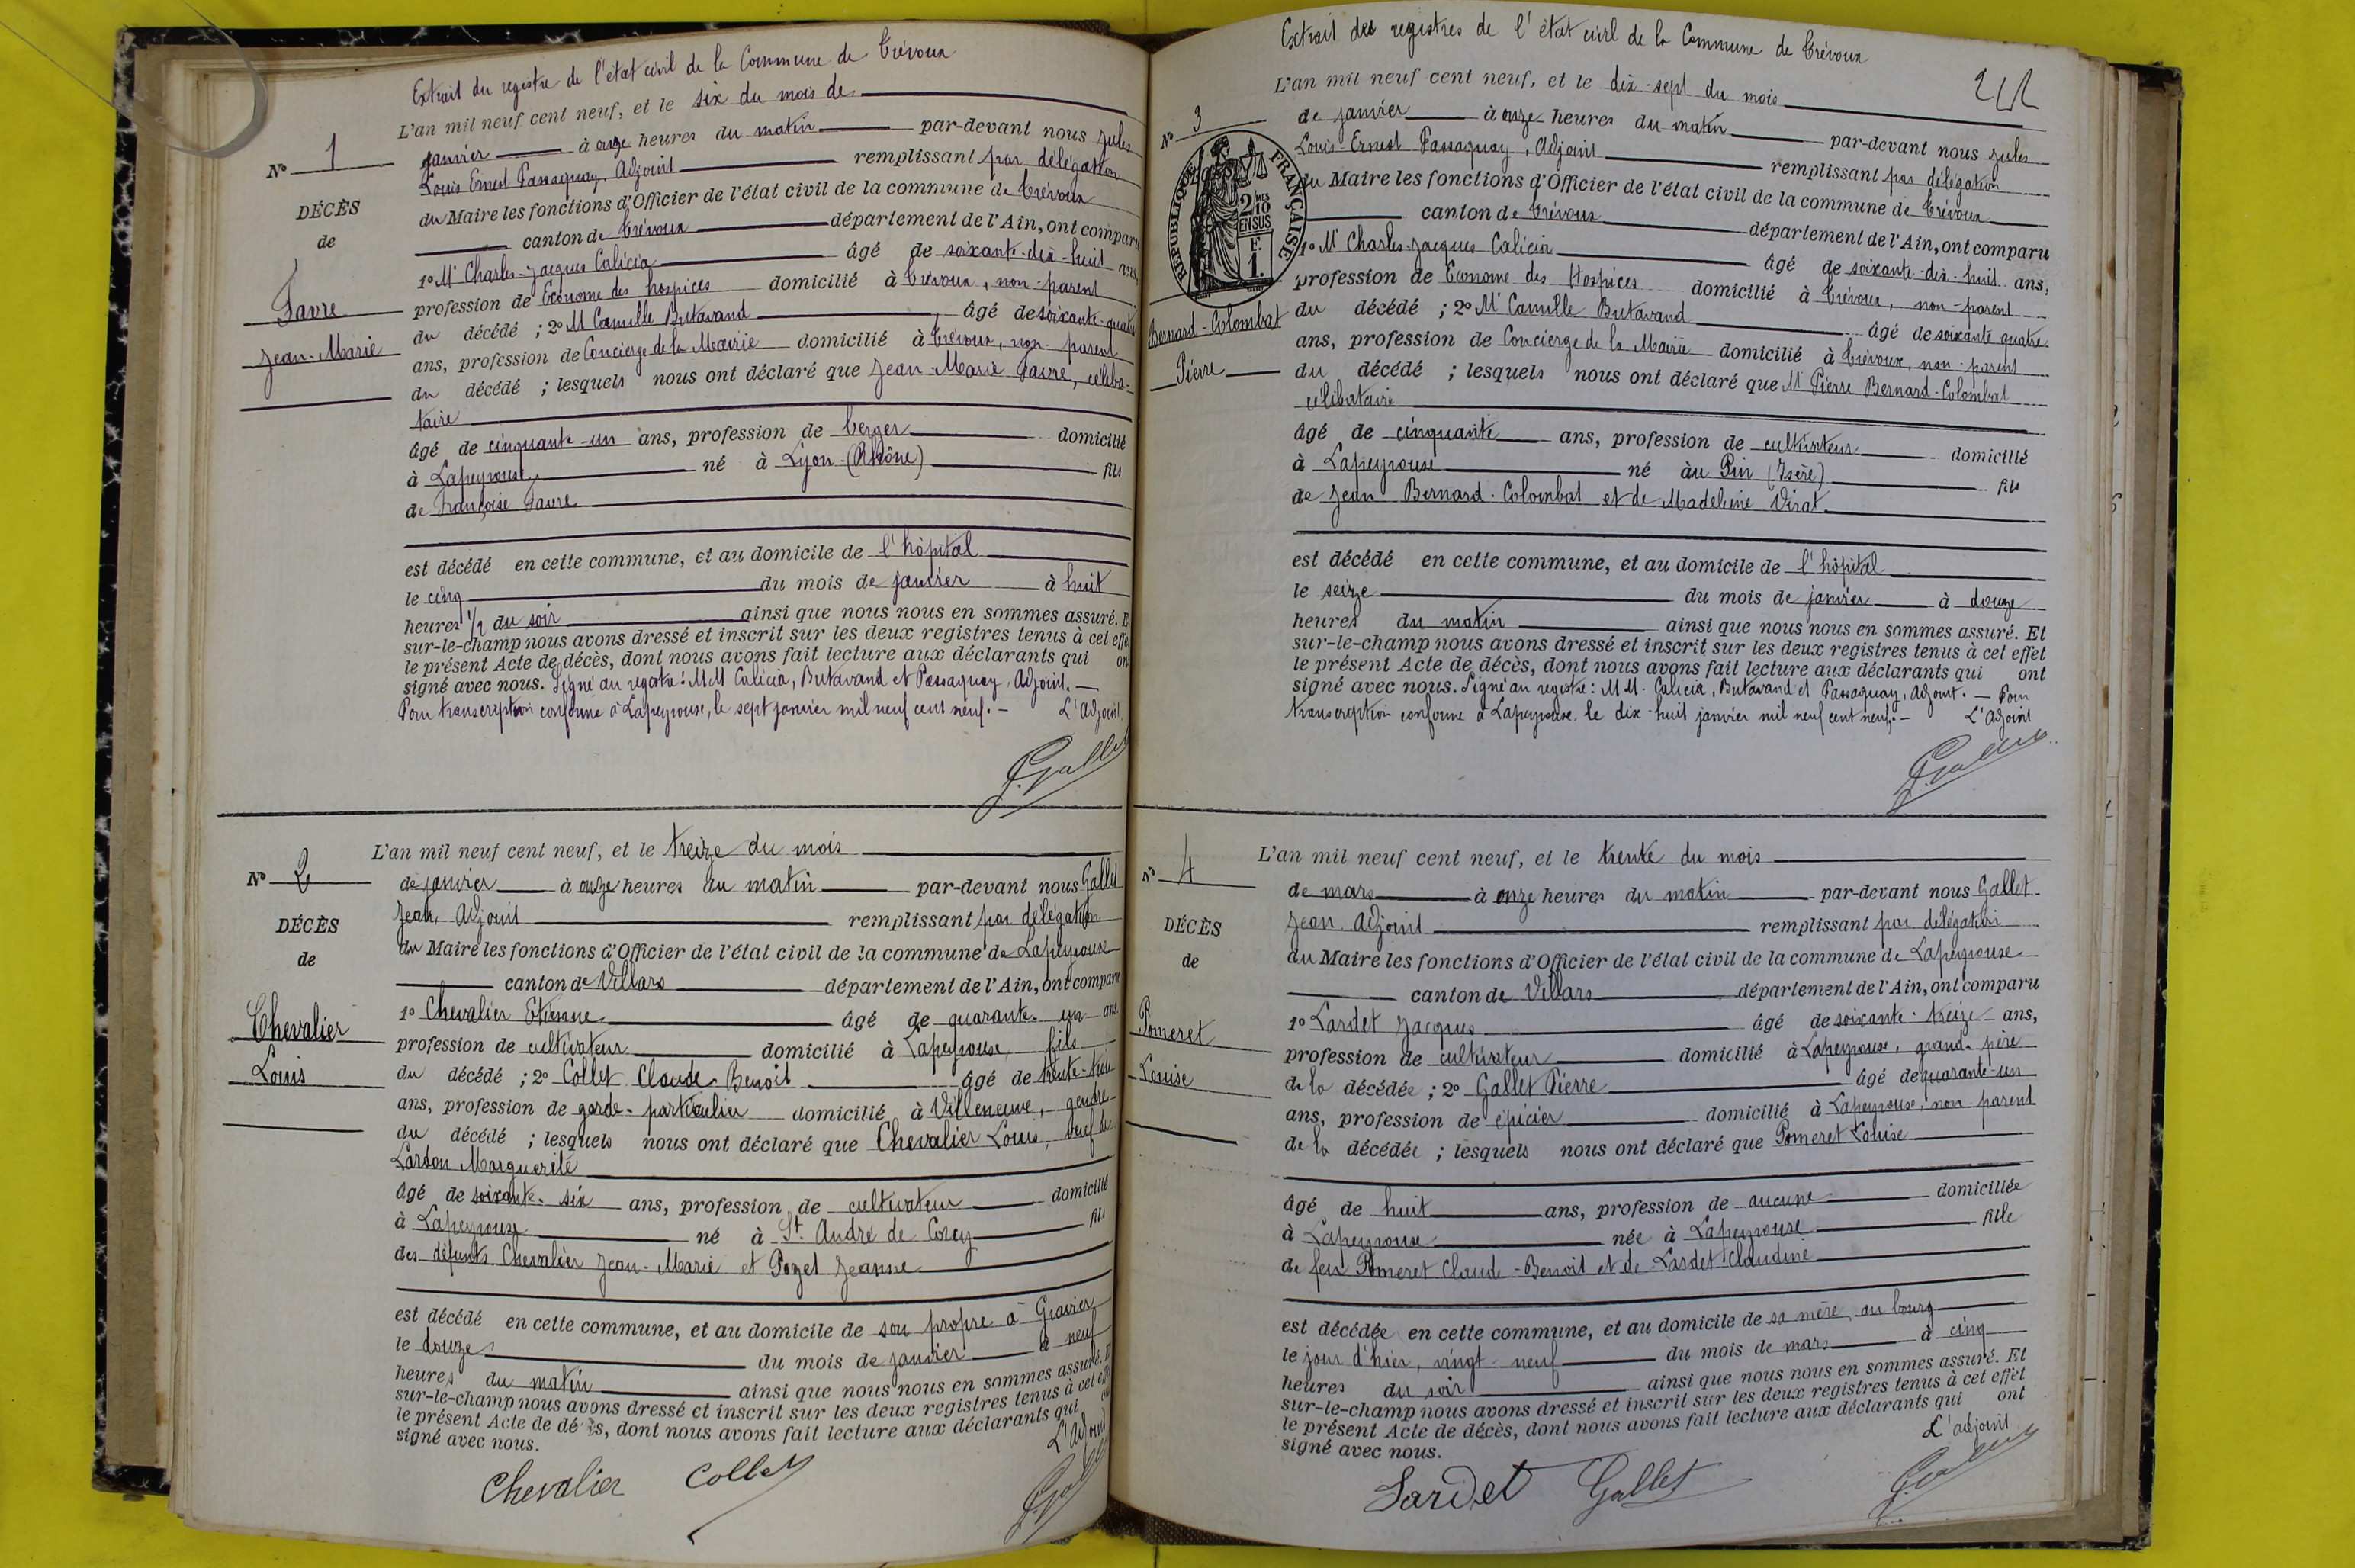 Extrait du registre de l'état civil de la Commune de Trévoux
L'an mil neuf cent neuf, et le six du mois de
N° 1
janvier à onze heures du matin par-devant nous Jules
Louis Ernest Passaquay, Adjoint remplissant par délégation
DÉCÈS
du Maire les fonctions d'Officier de l'état civil de la commune de Trévoux
de
canton de Trévoux département de l'Ain, ont comparu
1° Mr Charles-Jacques Calicia âgé de soixante-dix-huit ans,
Favre
profession de Econome des hospices domicilié à Trévoux, non-parent
du décédé ; 2° M Camille Butavand, âgé de soixante-quatre
Jean-Marie
ans, profession de Concierge de la Mairie domicilié à Trévoux, non-parent
du décédé ; lesquels nous ont déclaré que Jean-Marie Favre, céliba-
taire
âgé de cinquante-un ans, profession de berger domicilié
à Lapeyrouse, né à Lyon (Rhône) fils
de Françoise Favre
est décédé en cette commune, et au domicile de l'hôpital
le cinq du mois de janvier à huit
heures 1/2 du soir ainsi que nous nous en sommes assuré. E
sur-le-champ nous avons dressé et inscrit sur les deux registres tenus à cet effe
le présent Acte de décès, dont nous avons fait lecture aux déclarants qui on
signé avec nous. Signé au registre : MM Calicia, Butavand et Passaquay, Adjoint. —
Pour transcription conforme à Lapeyrouse, le sept janvier mil neuf cent neuf. — L'Adjoint
J. Gallet
L'an mil neuf cent neuf, et le treize du mois
N° 2
de janvier à onze heures du matin par-devant nous Gallet
Jean, Adjoint remplissant par délégation
DÉCÈS
du Maire les fonctions d'Officier de l'état civil de la commune de Lapeyrouse
de
canton de Villars département de l'Ain, ont comparu
1° Chevalier Etienne âgé de quarante-un ans
Chevalier
profession de cultivateur domicilié à Lapeyrouse, fils
Louis
du décédé ; 2° Collet Claude-Benoit âgé de trente-trois
ans, profession de garde-particulier domicilié à Villeneuve, gendre
du décédé ; lesquels nous ont déclaré que Chevalier Louis, veuf de
Lardon Marguerite
âgé de soixante-six ans, profession de cultivateur domicilié
à Lapeyrouse né à St. André de Corcy fils
des défunts Chevalier Jean-Marie et Pozet Jeanne
est décédé en cette commune, et au domicile de son propre à Gravier
le douze du mois de janvier à neuf
heures du matin ainsi que nous nous en sommes assuré. E
sur-le-champ nous avons dressé et inscrit sur les deux registres tenus à cet eff
le présent Acte de décès, dont nous avons fait lecture aux déclarants qui on
signé avec nous. L'Adjoint
Chevalier Collet J. Gallet
Extrait des registres de l'état civil de la Commune de Trévoux
L'an mil neuf cent neuf, et le dix-sept du mois
N° 3
de janvier à onze heures du matin par-devant nous Jules
Louis-Ernest Passaquay, Adjoint remplissant par délégation
RÉPUBLIQUE FRANÇAISE
2/10 MES EN SUS
F. 1.
du Maire les fonctions d'Officier de l'état civil de la commune de Trévoux
canton de Trévoux département de l'Ain, ont comparu
1° Mr Charles-Jacques Calicia âgé de soixante-dix-huit ans,
profession de Econome des Hospices domicilié à Trévoux, non-parent
Bernard-Colombat
du décédé ; 2° Mr Camille Butavand âgé de soixante quatre
ans, profession de Concierge de la Mairie domicilié à Trévoux, non-parent
Pierre
du décédé ; lesquels nous ont déclaré que Mr Pierre Bernard-Colombat
célibataire
âgé de cinquante ans, profession de cultivateur domicilié
à Lapeyrouse né au Pin (Isère) fils
de Jean Bernard-Colombat et de Madeleine Virat
est décédé en cette commune, et au domicile de l'hôpital
le seize du mois de janvier à douze
heures du matin ainsi que nous nous en sommes assuré. Et
sur-le-champ nous avons dressé et inscrit sur les deux registres tenus à cet effet
le présent Acte de décès, dont nous avons fait lecture aux déclarants qui ont
signé avec nous. Signé au registre : MM. Calicia, Butavand et Passaquay, Adjoint. — Pour
transcription conforme à Lapeyrouse, le dix-huit janvier mil neuf cent neuf. — L'Adjoint
J. Gallet
L'an mil neuf cent neuf, et le trente du mois
N° 4
de mars à onze heures du matin par-devant nous Gallet
Jean Adjoint remplissant par délégation
DÉCÈS
du Maire les fonctions d'Officier de l'état civil de la commune de Lapeyrouse
de
canton de Villars département de l'Ain, ont comparu
1° Lardet Jacques âgé de soixante-treize ans,
Pomeret
profession de cultivateur domicilié à Lapeyrouse, grand-père
Louise
de la décédée ; 2° Gallet Pierre âgé de quarante-un
ans, profession de épicier domicilié à Lapeyrouse, non parent
de la décédée ; lesquels nous ont déclaré que Pomeret Louise
âgé de huit ans, profession de aucune domiciliée
à Lapeyrouse née à Lapeyrouse fille
de feu Pomeret Claude-Benoit et de Lardet Claudine
est décédée en cette commune, et au domicile de sa mère, au bourg
le jour d'hier, vingt-neuf du mois de mars à cinq
heures du soir ainsi que nous nous en sommes assuré. Et
sur-le-champ nous avons dressé et inscrit sur les deux registres tenus à cet effet
le présent Acte de décès, dont nous avons fait lecture aux déclarants qui ont
signé avec nous. L'adjoint
Lardet Gallet J. Gallet